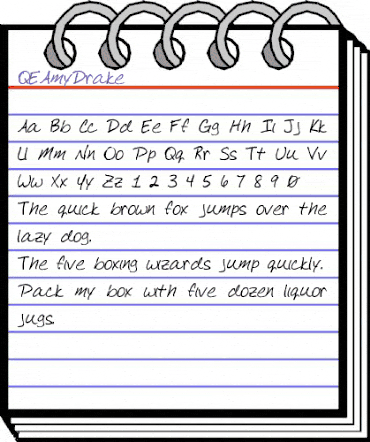 QEAmyDrake
Aa Bb Cc Dd Ee Ff Gg Hh Ii Jj Kk
Ll Mm Nn Oo Pp Qq Rr Ss Tt Uu Vv
Ww Xx Yy Zz 1 2 3 4 5 6 7 8 9 0
The quick brown fox jumps over the
lazy dog.
The five boxing wizards jump quickly.
Pack my box with five dozen liquor
jugs.